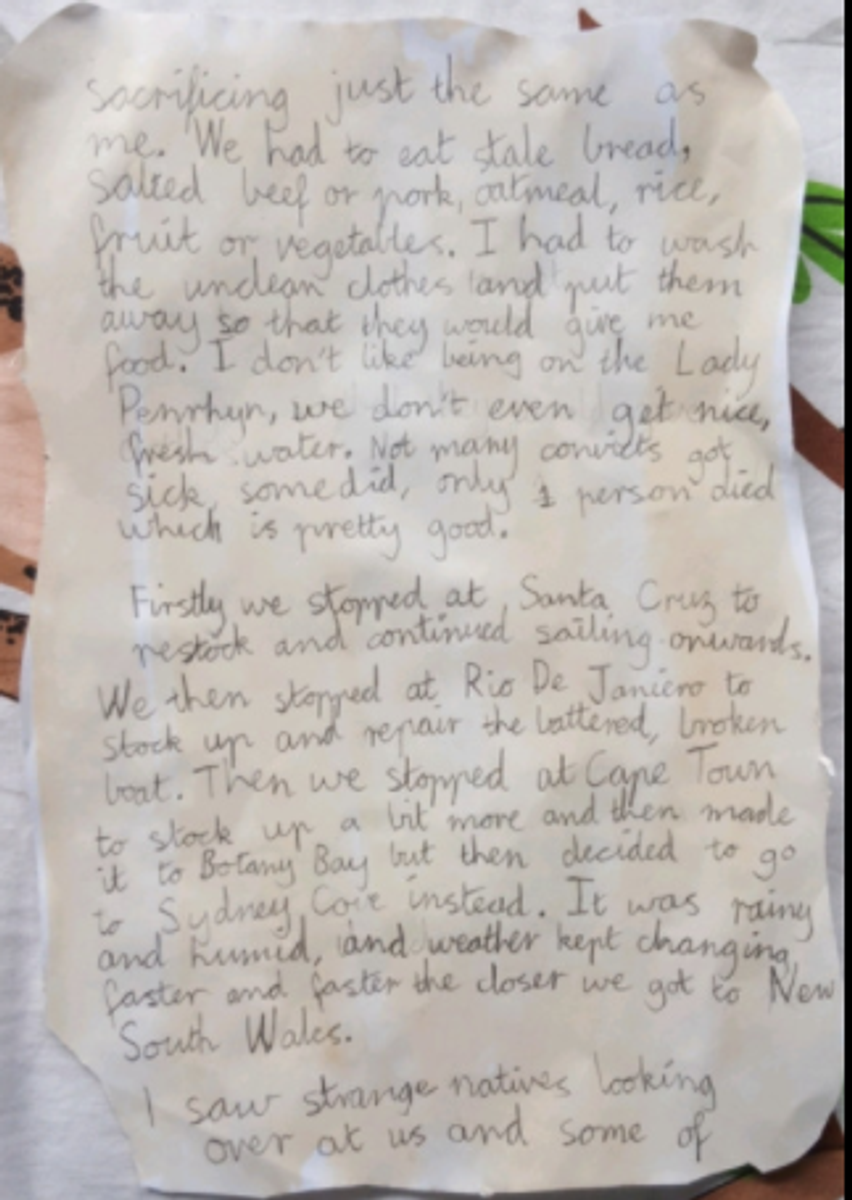 sacrificing just the same as
me. We had to eat stale bread,
salted beef or pork, oatmeal, rice,
fruit or vegetables. I had to wash
the unclean clothes and put them
away so that they would give me
food. I don't like being on the Lady
Penrhyn, we don't even get nice,
fresh water. Not many convicts got
sick, some did, only 1 person died
which is pretty good.
Firstly we stopped at Santa Cruz to
restock and continued sailing onwards.
We then stopped at Rio De Janiero to
stock up and repair the battered, broken
boat. Then we stopped at Cape Town
to stock up a bit more and then made
it to Botany Bay but then decided to go
to Sydney Cove instead. It was rainy
and humid, and weather kept changing
faster and faster the closer we got to New
South Wales.
I saw strange natives looking
over at us and some of